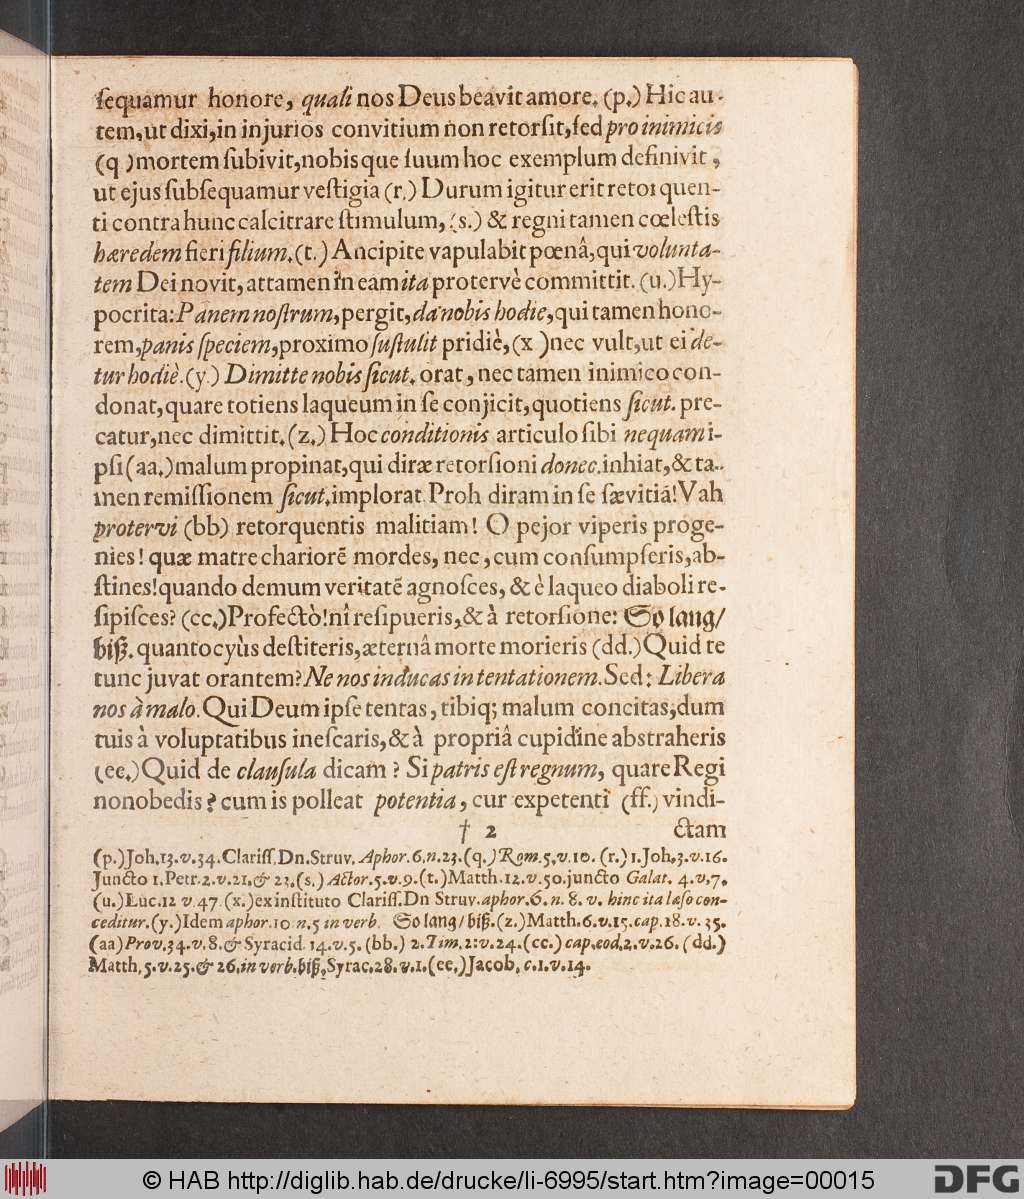 ſequamur honore, quali nos Deus beavit amore. (p.) Hic au-
tem, ut dixi, in injurios convitium non retorſit, ſed pro inimicis
(q) mortem ſubivit, nobisque ſuum hoc exemplum definivit,
ut ejus ſubſequamur veſtigia (r.) Durum igitur erit retorquen-
ti contra hunc calcitrare ſtimulum, (s.) & regni tamen cœleſtis
hæredem fieri filium. (t.) Ancipite vapulabit pœnâ, qui volunta-
tem Dei novit, attamen in eam ita protervè committit. (u.) Hy-
pocrita: Panem noſtrum, pergit, da nobis hodie, qui tamen hono-
rem, panis ſpeciem, proximo ſuſtulit pridiè, (x) nec vult, ut ei de-
tur hodiè. (y.) Dimitte nobis ſicut. orat, nec tamen inimico con-
donat, quare totiens laqueum in ſe conjicit, quotiens ſicut. pre-
catur, nec dimittit. (z.) Hoc conditionis articulo ſibi nequam i-
pſi (aa.) malum propinat, qui diræ retorſioni donec. inhiat, & ta-
men remiſſionem ſicut. implorat. Proh diram in ſe ſævitiã! Vah
protervi (bb) retorquentis malitiam! O pejor viperis proge-
nies! quæ matre chariorẽ mordes, nec, cum conſumpſeris, ab-
ſtines! quando demum veritatẽ agnoſces, & è laqueo diaboli re-
ſipiſces? (cc.) Profectò! nî reſipueris, & à retorſione: So lang/
biß. quantocyùs deſtiteris, æternâ morte morieris (dd.) Quid te
tunc juvat orantem? Ne nos inducas in tentationem. Sed: Libera
nos à malo. Qui Deum ipſe tentas, tibiq; malum concitas, dum
tuis à voluptatibus ineſcaris, & à propriâ cupidine abstraheris
(ee.) Quid de clauſula dicam? Si patris eſt regnum, quare Regi
non obedis? cum is polleat potentia, cur expetenti (ff.) vindi-
† 2 ctam
(p.) Joh. 13. v. 34. Clariſſ. Dn. Struv. Aphor. 6. n. 23. (q.) Rom. 5. v. 10. (r.) 1. Joh. 3. v. 16.
Juncto 1. Petr. 2. v. 21. & 23. (s.) Actor. 5. v. 9. (t.) Matth. 12. v. 50. juncto Galat. 4. v. 7.
(u.) Luc. 12 v. 47. (x.) ex inſtituto Clariſſ. Dn Struv. aphor. 6. n. 8. v. hinc ita læſo con-
ceditur. (y.) Idem aphor. 10 n. 5 in verb. So lang/ biß. (z.) Matth. 6. v. 15. cap. 18. v. 35.
(aa) Prov. 34. v. 8. & Syracid. 14. v. 5. (bb.) 2. Tim. 2: v. 24. (cc.) cap. eod. 2. v. 26. (dd.)
Matth. 5. v. 25. & 26. in verb. biß. Syrac. 28. v. 1. (ee.) Jacob. c. 1. v. 14.
© HAB http://diglib.hab.de/drucke/li-6995/start.htm?image=00015
DFG